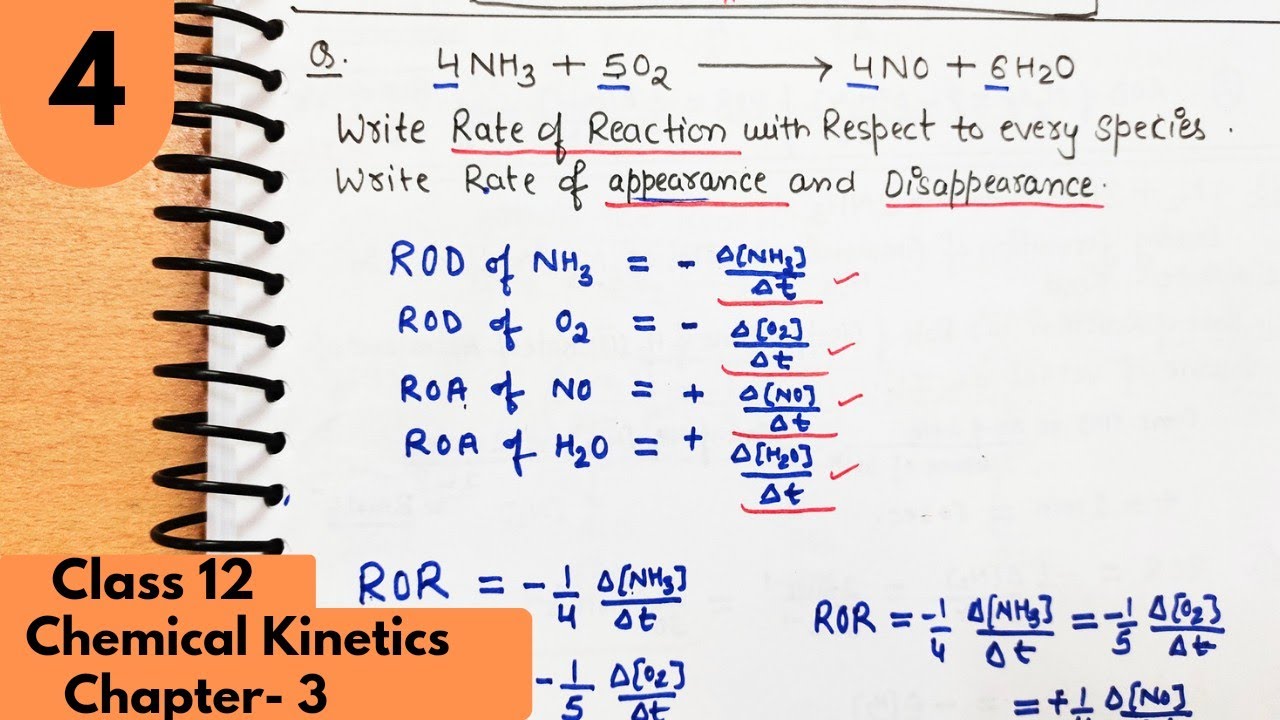 4
Q. 4NH₃ + 5O₂ ⟶ 4NO + 6H₂O
Write Rate of Reaction with Respect to every species.
Write Rate of appearance and Disappearance.
ROD of NH₃ = - Δ[NH₃]/Δt ✓
ROD of O₂ = - Δ[O₂]/Δt ✓
ROA of NO = + Δ[NO]/Δt ✓
ROA of H₂O = + Δ[H₂O]/Δt ✓
ROR = -1/4 Δ[NH₃]/Δt
-1/5 Δ[O₂]/Δt
ROR = -1/4 Δ[NH₃]/Δt = -1/5 Δ[O₂]/Δt
= +1/4 Δ[NO]/Δt
Class 12
Chemical Kinetics
Chapter- 3